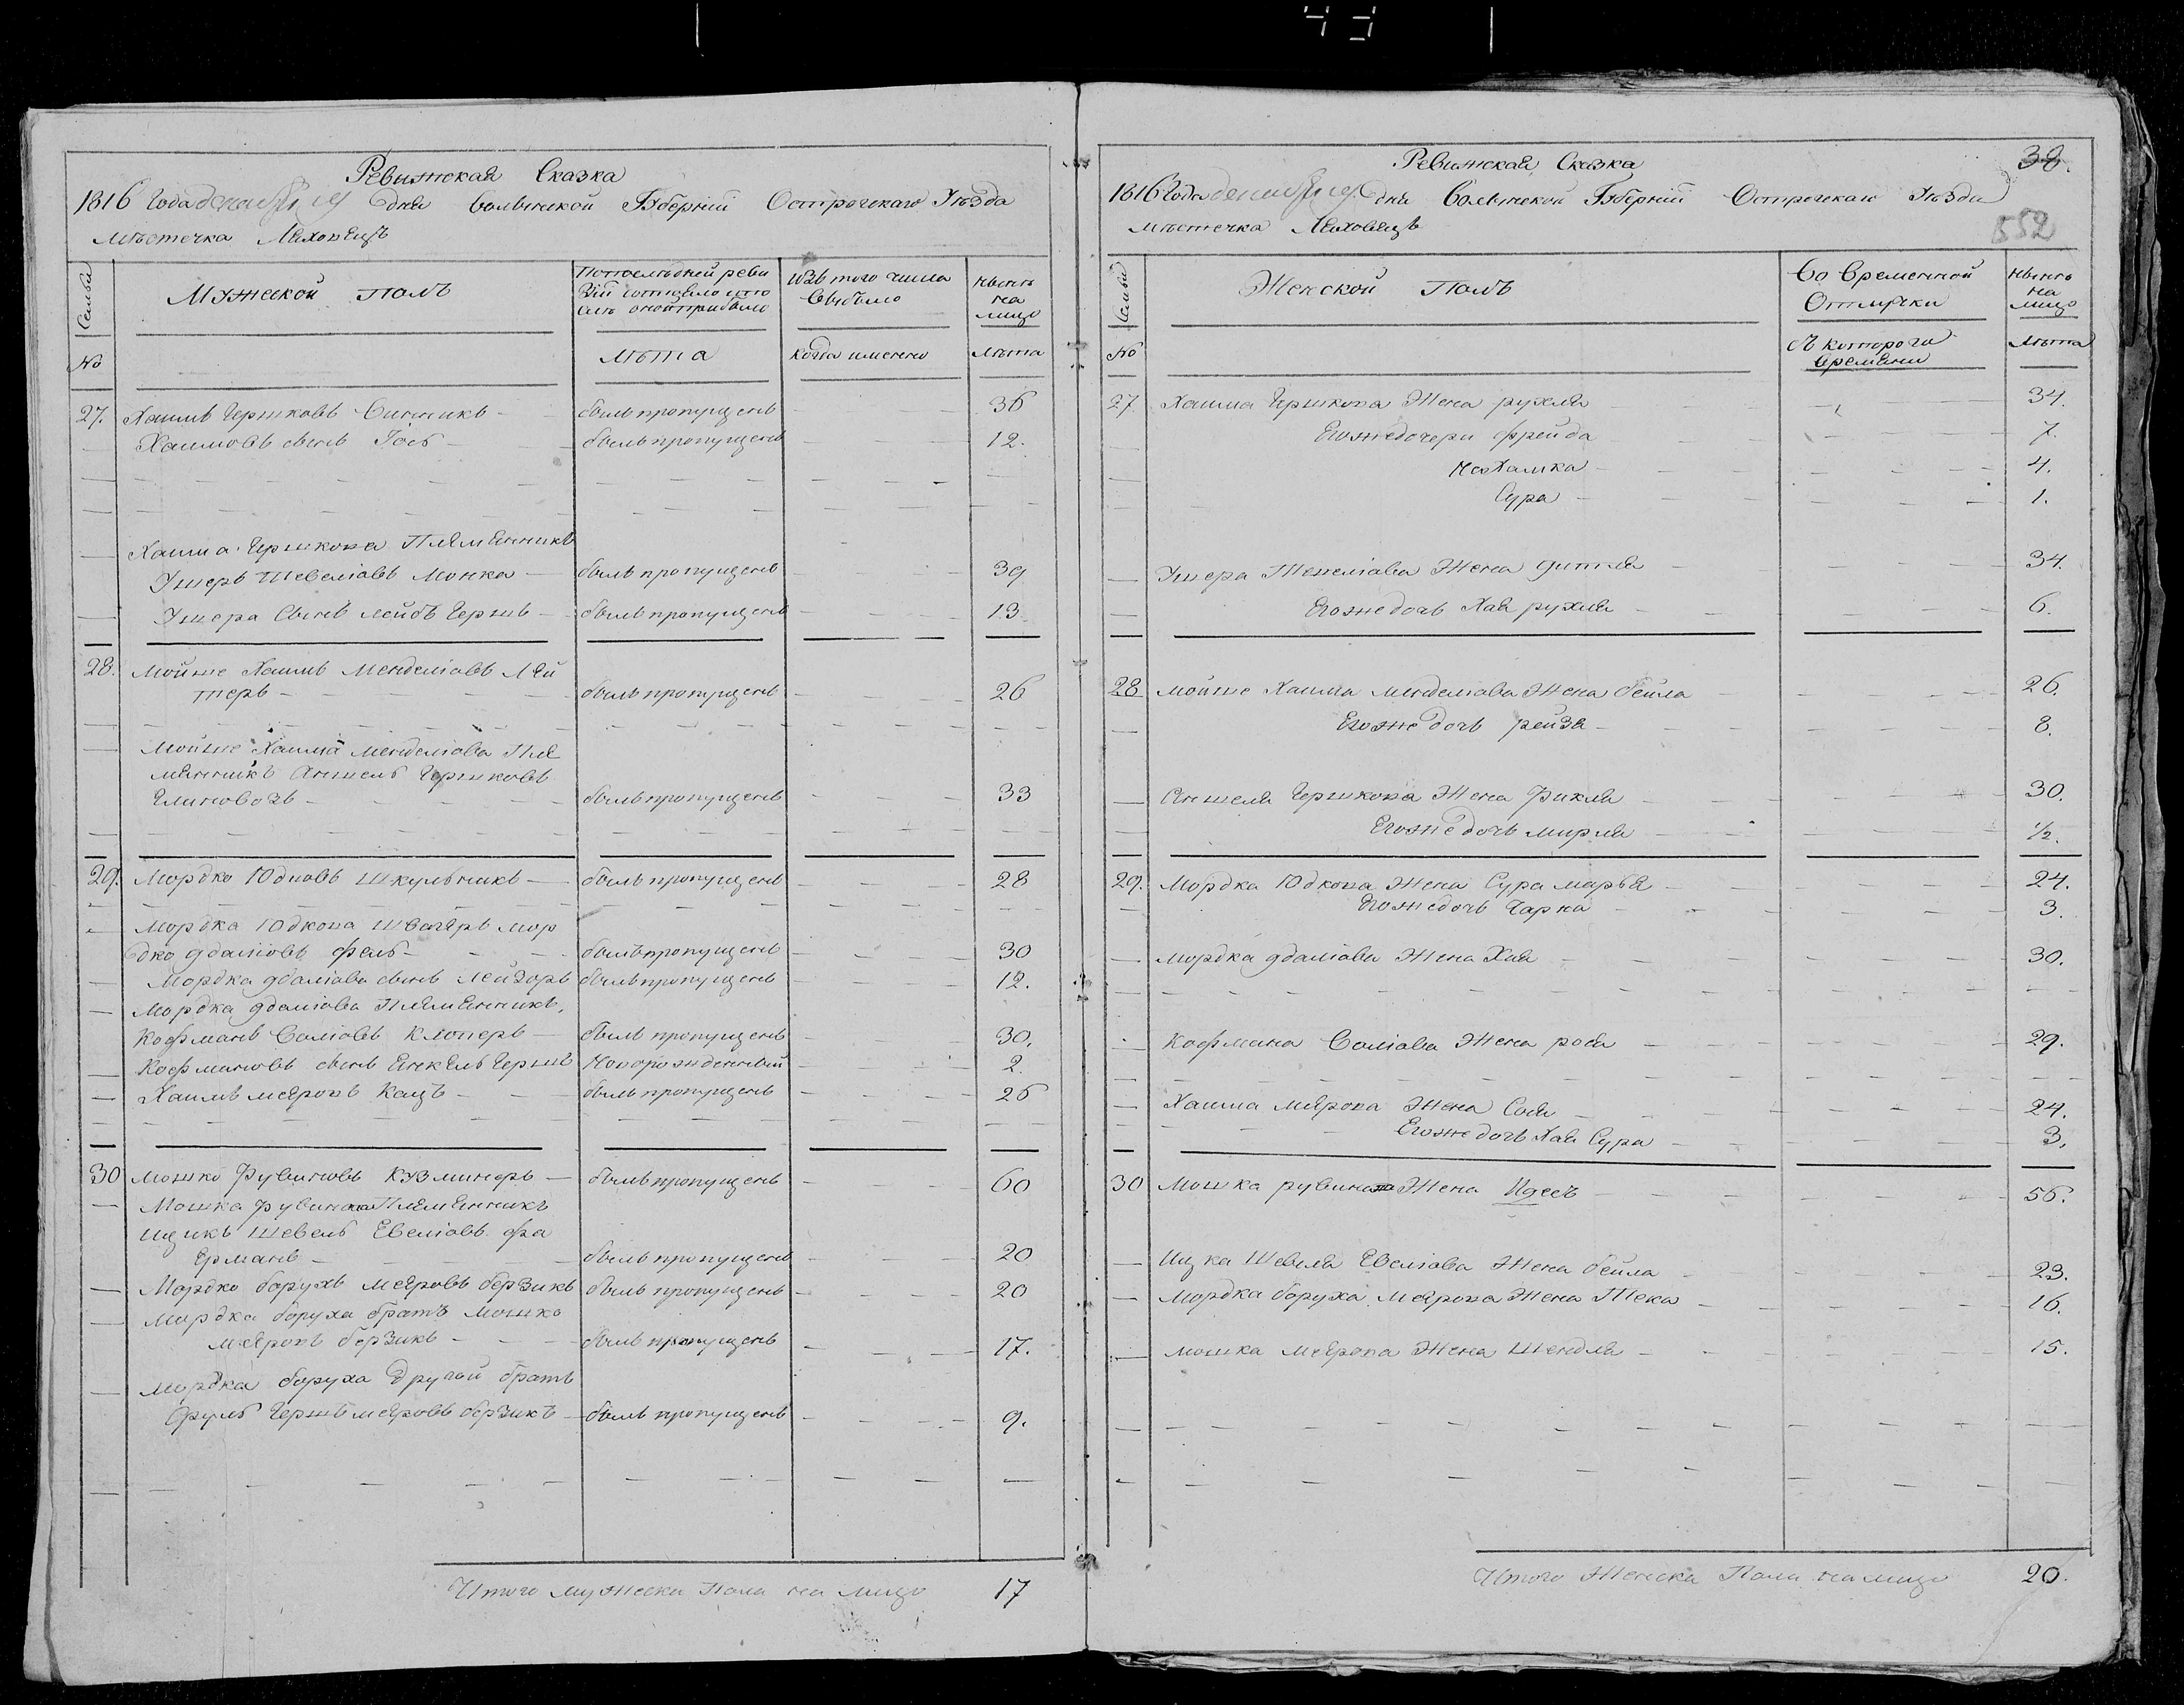 Ревижская Сказка
1816 Года декабря 19 дня Волынской Губерній Острогскаго Уѣзда
мѣстечка Ляховецъ
Семьи
Мужеской полъ
По последней реви
зіи состояло или
послѣ оной прибыло
Изъ того числа
выбыло
нынѣ
на
лицо
№
лѣта
когда имянно
лѣта
27. Хаимъ Гершковъ Ситникъ - былъ пропущенъ 36
Хаимовъ сынъ Іосъ - былъ пропущенъ 12.
Хаима Гершкова Племянникъ
Ушеръ Шевеліовъ Монка - былъ пропущенъ 39
Ушера Сынъ лейбъ Гершъ - былъ пропущенъ 13.
28. Мойше Хаимъ Менделіовъ Лей
теръ - былъ пропущенъ 26
Мойше Хаима Менделіова Пле
мянникъ Аншель Гершковъ
былъ пропущенъ 33
29. Мордко Юдковъ Шкульникъ - былъ пропущенъ 28
Мордка Юдкова Швагеръ Мор
дко Удаліовъ фель - былъ пропущенъ 30
Мордка Удаліова сынъ Лейзоръ былъ пропущенъ 12.
Мордка Удаліова Племянникъ,
Кофманъ Воліовъ Клоперъ - былъ пропущенъ 30.
Кофмановъ сынъ Енкель Гершъ Новорожденный 2.
Хаимъ Меяровъ Кацъ - былъ пропущенъ 26
30 Мошко Рувиновъ Кузминеръ - былъ пропущенъ 60
Мошка Рувинова Племянникъ
Ицикъ Шевель Евеліовъ фа
ерманъ - былъ пропущенъ 20
Мордко борухъ Меяровъ берзикъ былъ пропущенъ 20
Мордка боруха братъ Мошко
Меяровъ берзикъ - былъ пропущенъ 17.
Мордка боруха Другой братъ
Сруль Гершъ Меяровъ берзикъ - былъ пропущенъ 9.
Итого мужеска Пола на лицо 17
38.
Ревижская Сказка
1816 Года декабря 19 дня Волынской Губерній Острогскаго Уѣзда
552
мѣстечка Ляховецъ
Семьи
Женской Полъ
Во Временной
Отлучки
нынѣ
на
лицо
№
Съ котораго
времени
лѣта
27 Хаима Гершкова Жена рухля 34.
Егоже дочери фрейда 7.
Нехамка 4.
Сура 1.
Ушера Шевеліова Жена гитля 34.
Егоже дочь Хая рухля 6.
28 Мойше Хаима Менделіова Жена бейла 26.
Егоже дочь рейзя 8.
Аншеля Гершкова Жена Рикля 30.
Егоже дочь мирля ½.
29. Мордка Юдкова Жена Сура марья 24.
Егоже дочь Чарна 3.
Мордка Удаліова Жена Хая 30.
Кофмана Воліова Жена рося 29.
Хаима Меярова Жена Сося 24.
Егоже дочь Хая Сура 3.
30 Мошка рувинова Жена Идесъ 56.
Ицка Шевеля Евеліова Жена бейла 23.
Мордка боруха Меярова Жена Тека 16.
Мошка Меярова Жена Шендля 15.
Итого Женска Пола на лицо 20.